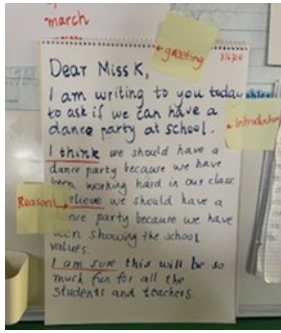 march
greeting
Dear Miss K,
I am writing to you today
to ask if we can have a
dance party at school.
Introduction
I think we should have a
dance party because we have
been working hard in our class
Reasons
elieve we should have a
nce party because we have
een showing the school
values.
I am sure this will be so
much fun for all the
students and teachers.